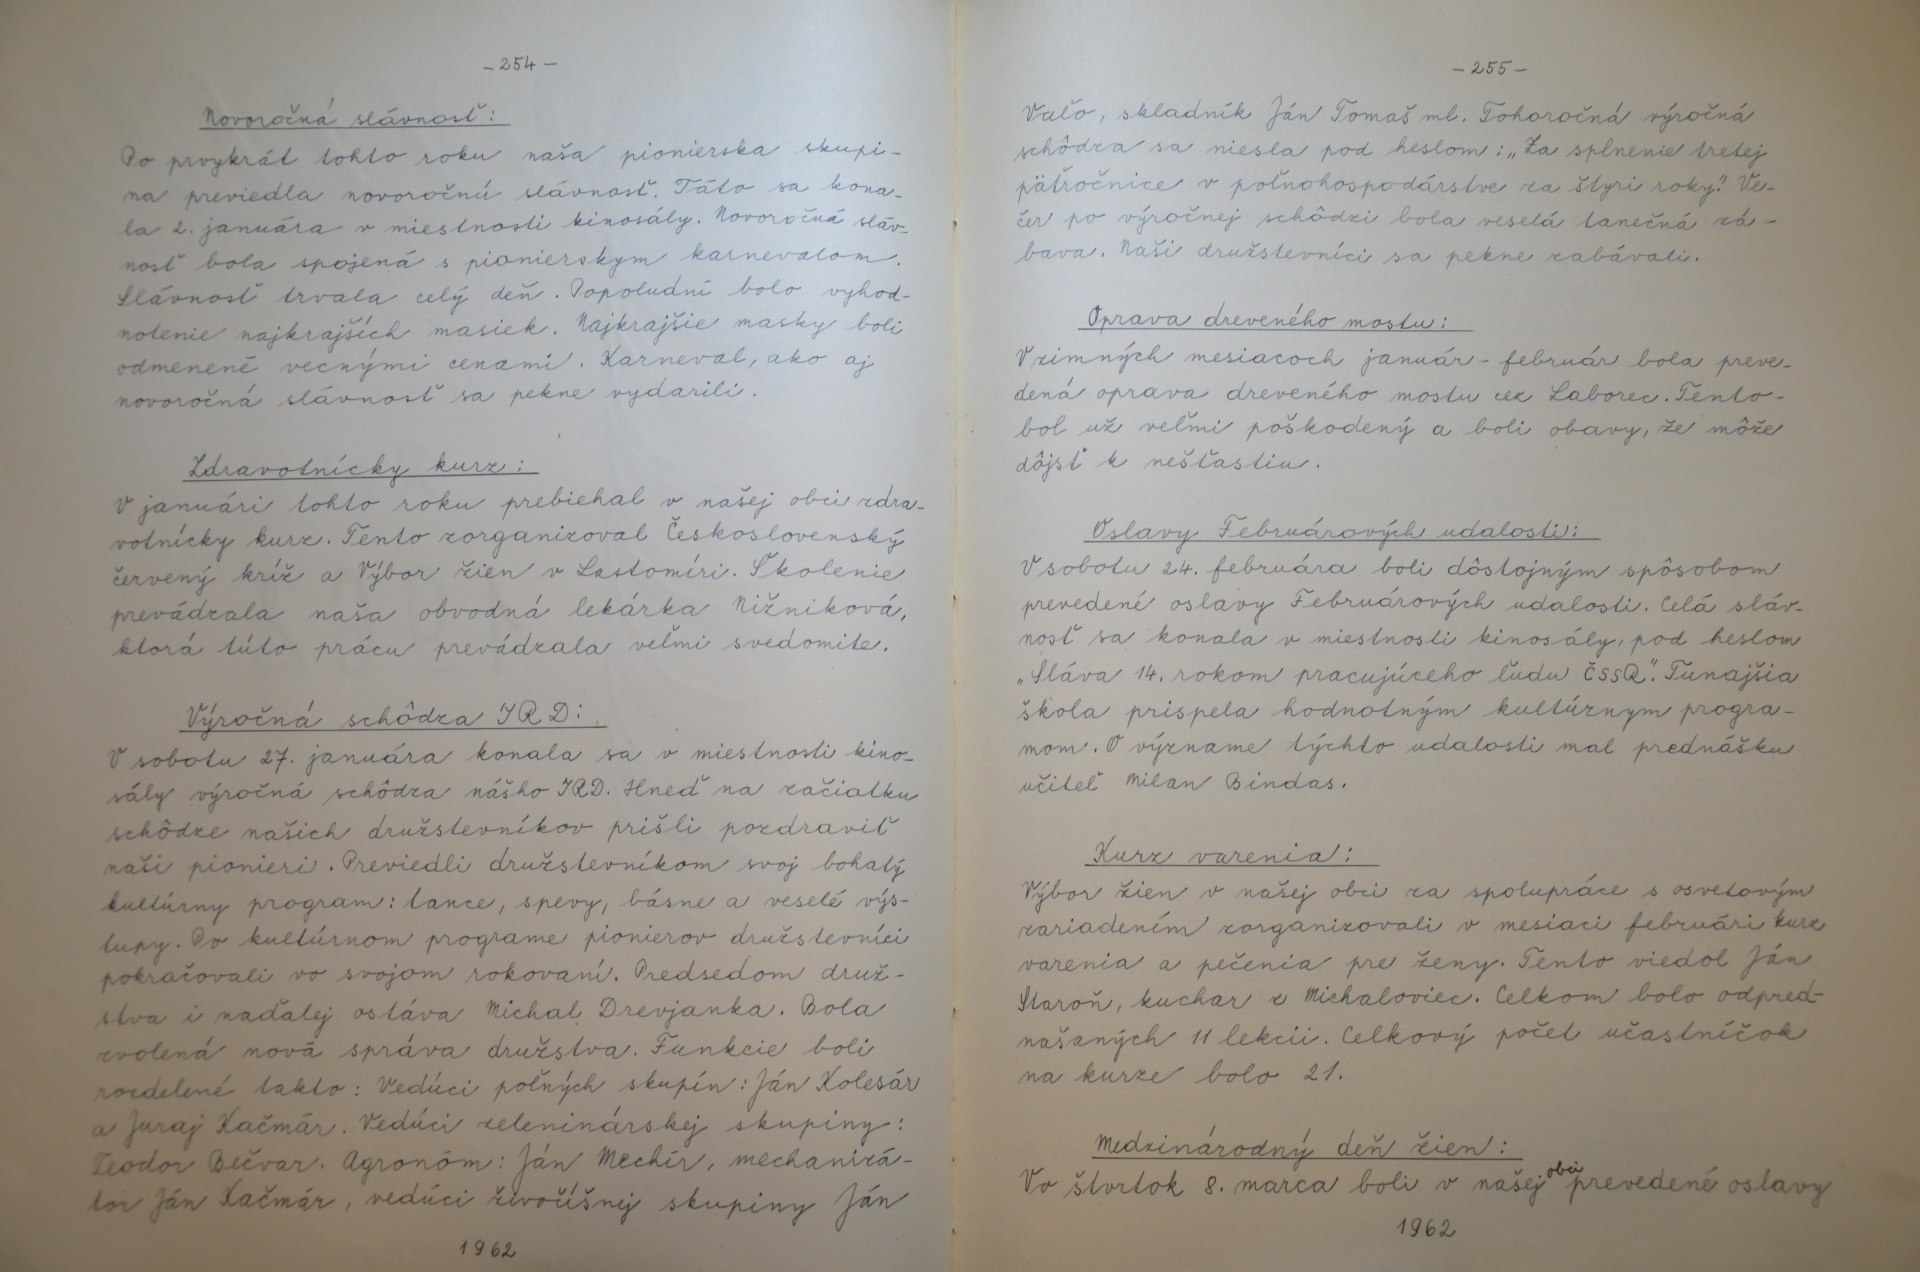 -254-
Novoročná slávnosť:
Po prvykrát tohto roku naša pionierska skupi-
na previedla novoročnú slávnosť. Táto sa kona-
la 2. januára v miestnosti kinosály. Novoročná sláv-
nosť bola spojená s pionierskym karnevalom.
Slávnosť trvala celý deň. Popoludní bolo vyhod-
notenie najkrajších masiek. Najkrajšie masky boli
odmenené vecnými cenami. Karneval, ako aj
novoročná slávnosť sa pekne vydarili.
Zdravotnícky kurz:
V januári tohto roku prebiehal v našej obci zdra-
votnícky kurz. Tento zorganizoval Československý
červený kríž a Výbor žien v Lastomíri. Školenie
prevádzala naša obvodná lekárka Nižniková,
ktorá túto prácu prevádzala veľmi svedomite.
Výročná schôdza JRD:
V sobotu 27. januára konala sa v miestnosti kino-
sály výročná schôdza nášho JRD. Hneď na začiatku
schôdze našich družstevníkov prišli pozdraviť
naši pionieri. Previedli družstevníkom svoj bohatý
kultúrny program: tance, spevy, básne a veselé výs-
tupy. Po kultúrnom programe pionierov družstevníci
pokračovali vo svojom rokovaní. Predsedom druž-
stva i naďalej ostáva Michal Drevjanka. Bola
zvolená nová správa družstva. Funkcie boli
rozdelené takto: Vedúci poľných skupín: Ján Kolesár
a Juraj Kačmár. Vedúci zeleninárskej skupiny:
Teodor Bečvar. Agronóm: Ján Mechír, mechanizá-
tor Ján Kačmár, vedúci živočíšnej skupiny Ján
1962
-255-
Vaľo, skladník Ján Tomaš ml. Tohoročná výročná
schôdza sa niesla pod heslom: „Za splnenie tretej
päťročnice v poľnohospodárstve za štyri roky." Ve-
čer po výročnej schôdzi bola veselá tanečná zá-
bava. Naši družstevníci sa pekne zabávali.
Oprava dreveného mostu:
V zimných mesiacoch január - február bola preve-
dená oprava dreveného mostu cez Laborec. Tento-
bol už veľmi poškodený a boli obavy, že môže
dôjsť k nešťastiu.
Oslavy Februárových udalosti:
V sobotu 24. februára boli dôstojným spôsobom
prevedené oslavy Februárových udalosti. Celá sláv-
nosť sa konala v miestnosti kinosály, pod heslom
„Sláva 14. rokom pracujúceho ľudu ČSSR". Tunajšia
škola prispela hodnotným kultúrnym progra-
mom. O význame týchto udalosti mal prednášku
učiteľ Milan Bindas.
Kurz varenia:
Výbor žien v našej obci za spolupráce s osvetovým
zariadením zorganizovali v mesiaci februári kurz
varenia a pečenia pre ženy. Tento viedol Ján
Staroň, kuchar z Michaloviec. Celkom bolo odpred-
našaných 11 lekcii. Celkový počet učastníčok
na kurze bolo 21.
Medzinárodný deň žien:
Vo štvrtok 8. marca boli v našej obci prevedené oslavy
1962